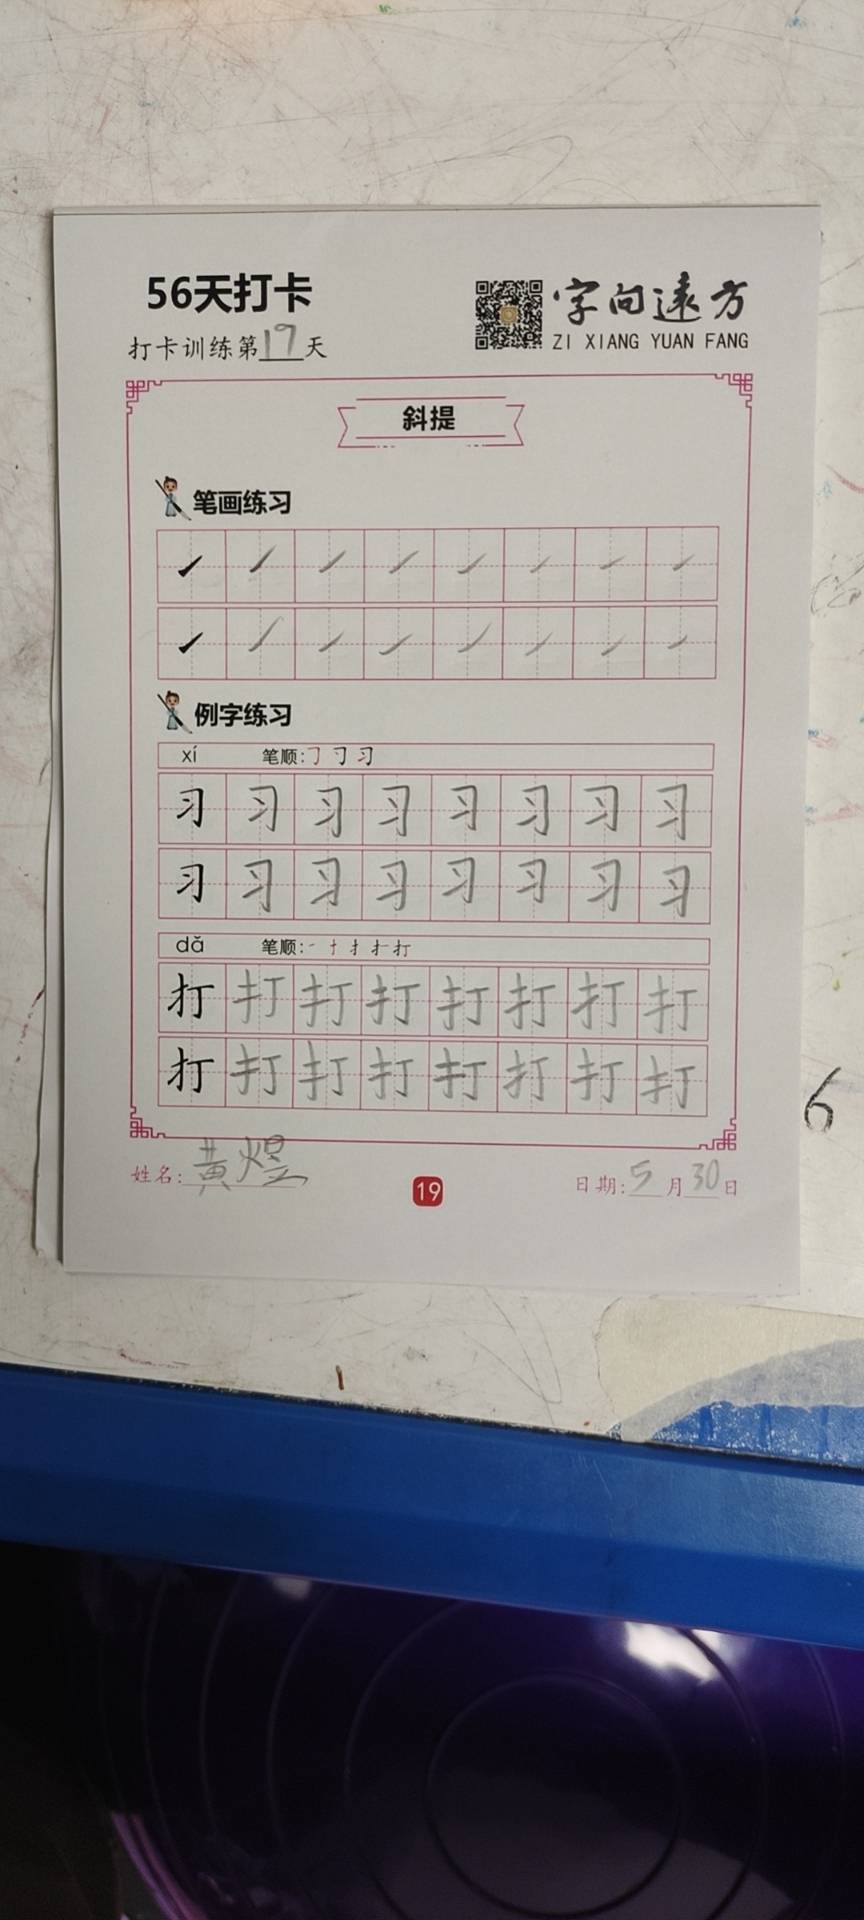 56天打卡
字向远方
打卡训练第19天
ZI XIANG YUAN FANG
斜提
笔画练习
例字练习
xí 笔顺:
习 习 习 习 习 习 习 习
习 习 习 习 习 习 习 习
dǎ 笔顺:
打 打 打 打 打 打 打 打
打 打 打 打 打 打 打 打
6
姓名:黄煜
19
日期:5月30日